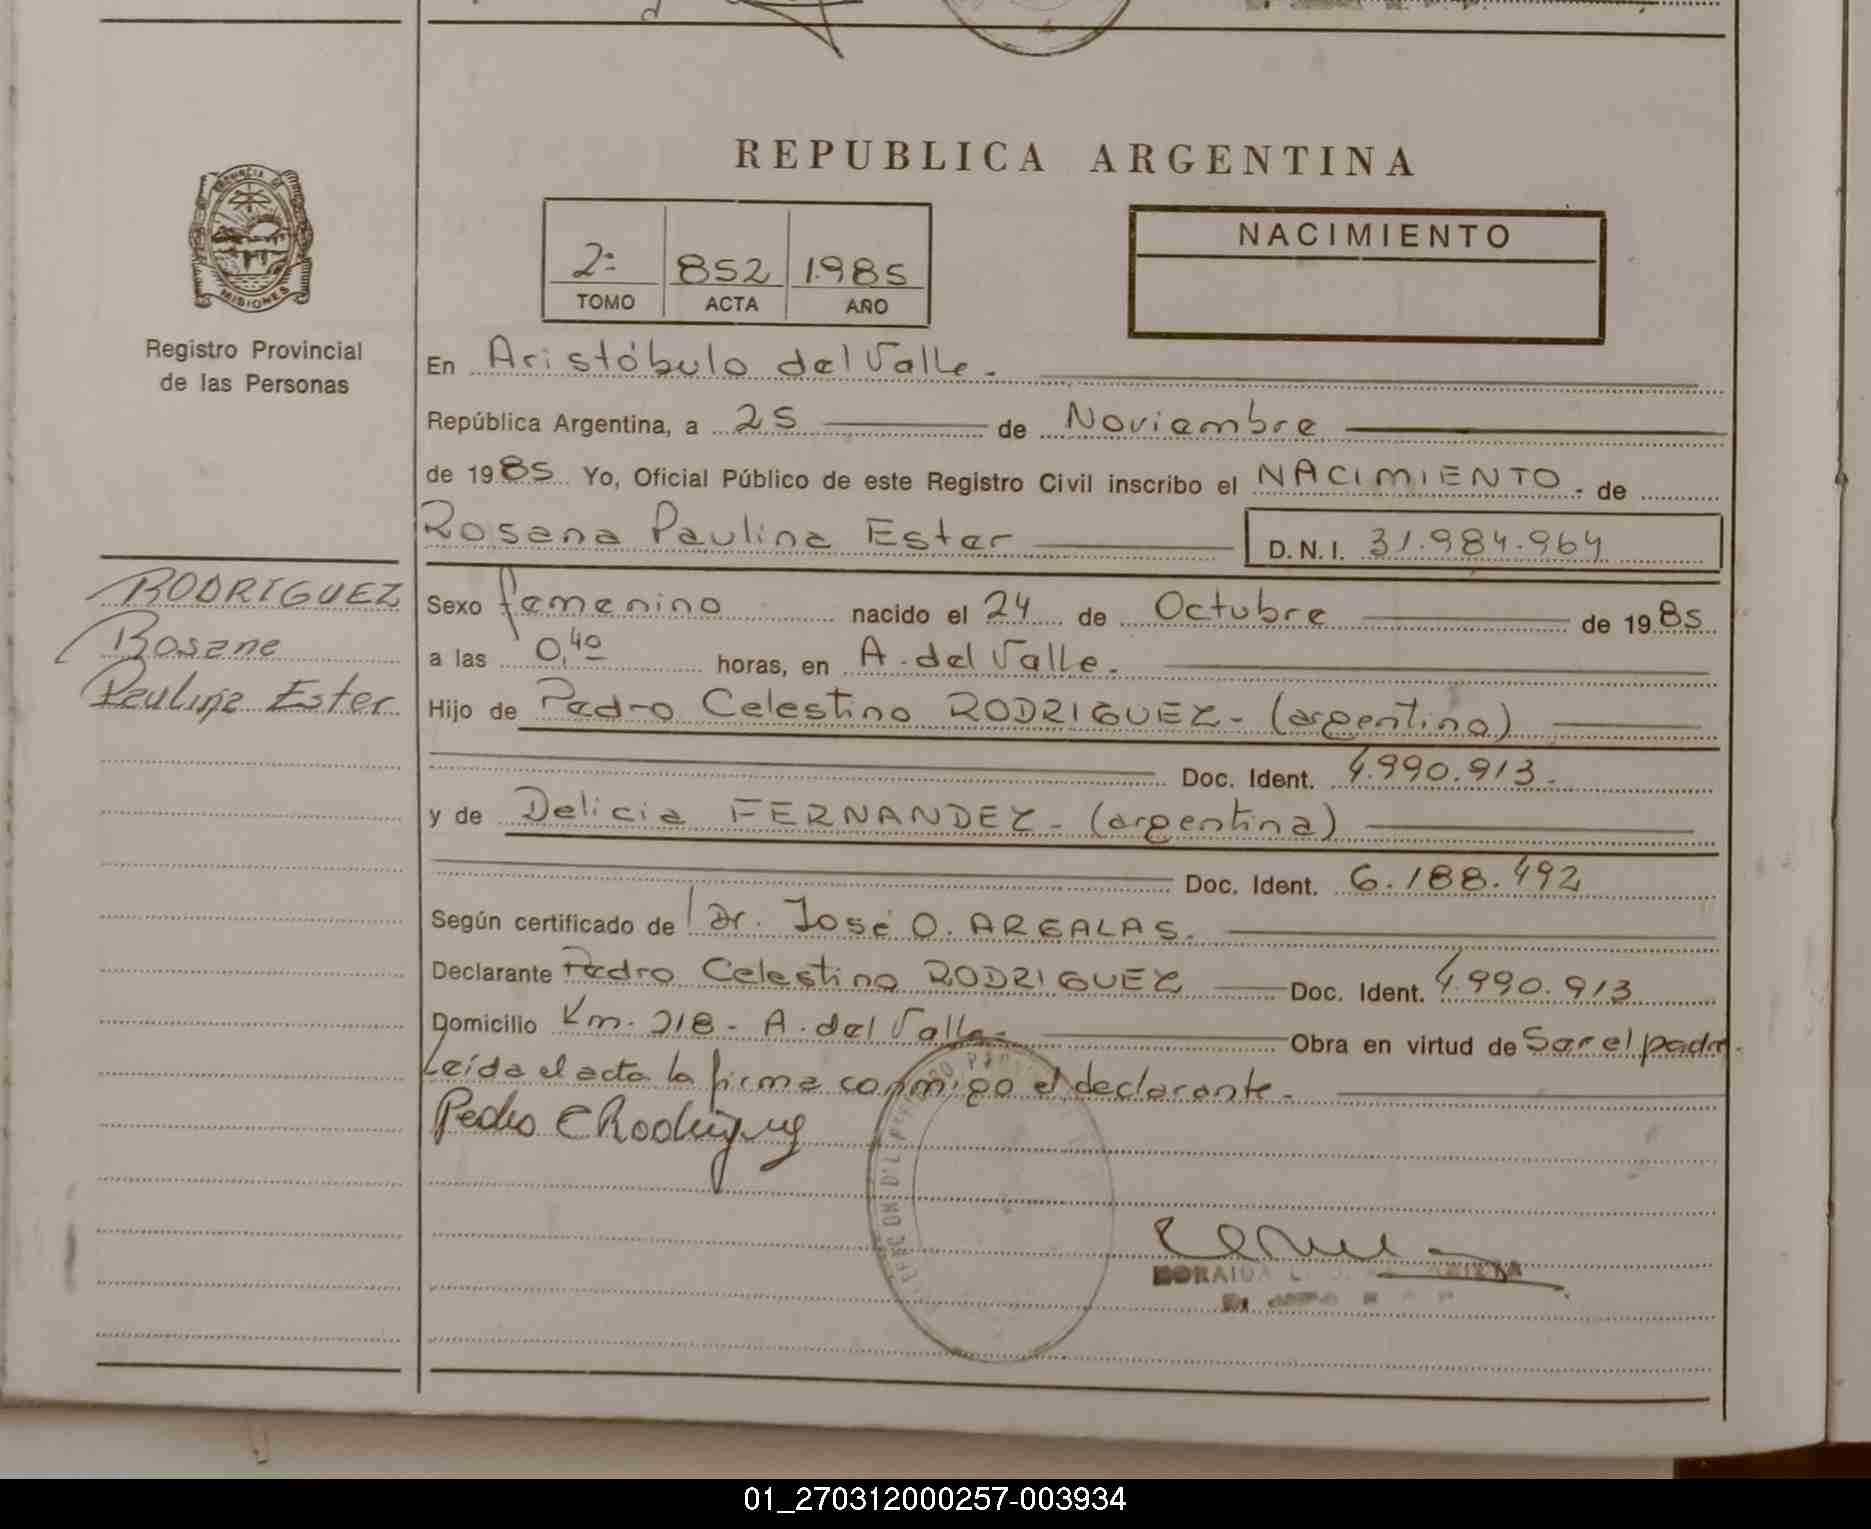 REPUBLICA ARGENTINA
PROVINCIA DE
MISIONES
Registro Provincial
de las Personas
2ª 852 1.985
TOMO ACTA AÑO
NACIMIENTO
En Aristóbulo del Valle.
República Argentina, a 25 de Noviembre
de 1985 Yo, Oficial Público de este Registro Civil inscribo el NACIMIENTO. de
Rosana Paulina Ester D.N.I. 31.984.964
RODRIGUEZ
Rosana
Paulina Ester
Sexo femenino nacido el 24 de Octubre de 1985
a las 0,40 horas, en A. del Valle.
Hijo de Pedro Celestino RODRIGUEZ - (argentino)
Doc. Ident. 4.990.913.
y de Delicia FERNANDEZ - (argentina)
Doc. Ident. 6.188.492
Según certificado de Dr. José O. ARGALAS.
Declarante Pedro Celestino RODRIGUEZ Doc. Ident. 4.990.913
Domicilio Km. 218 - A. del Valle. Obra en virtud de Ser el padre.
Leída el acta la firma conmigo el declarante.
Pedro C Rodriguez
01_270312000257-003934